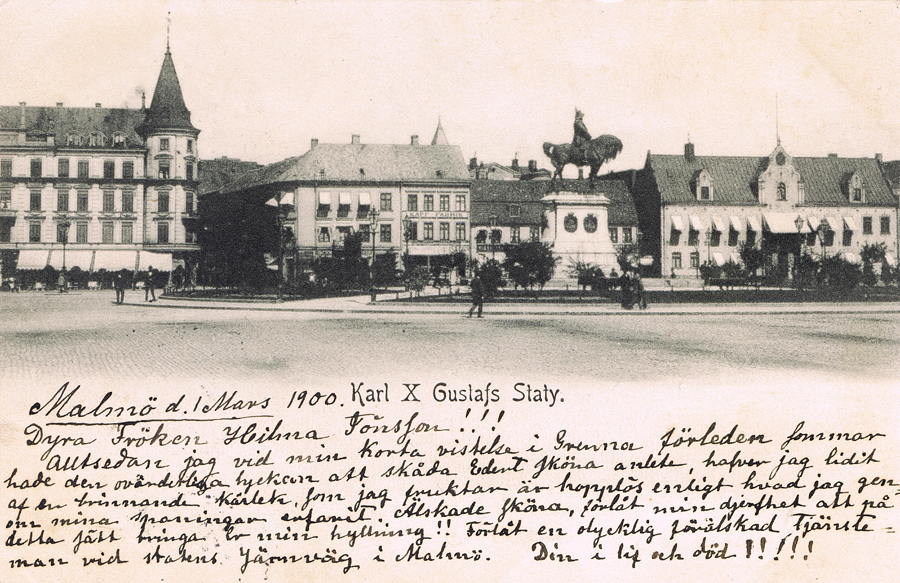 KAFFE FABRIK
Karl X Gustafs Staty.
Malmö d. 1 Mars 1900.
Dyra Fröken Hilma Fönsson!!!
Alltsedan jag vid min korta vistelse i Grenna förleden sommar
hade den ovärderliga lyckan att skåda Edert sköna anlete, hafver jag lidit
af en brinnande kärlek, som jag fruktar är hopplös enligt hvad jag gen-
om mina spaningar erfarit. Älskade sköna, förlåt min djerfhet att på
detta sätt bringa Er min hyllning!! Förlåt en olycklig förälskad Tjänste-
man vid statens Järnväg i Malmö. Din i lif och död!!!!!